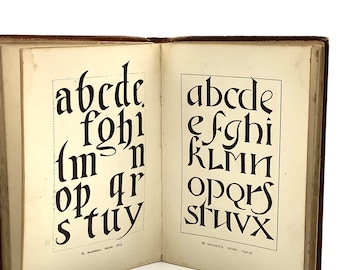 abcde
fghi
lm n
op qr
stuy
abcde
efghi
kLMN
opqrs
stuvx